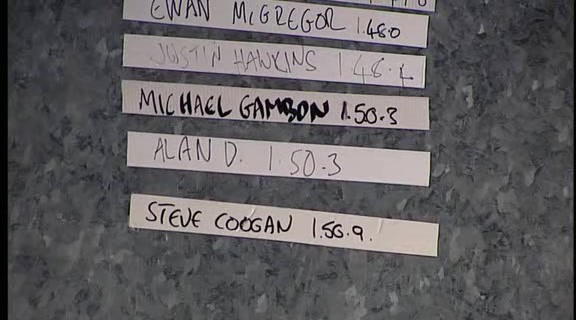 EWAN McGREGOR 1.48.0
JUSTIN HAWKINS 1.48.4
MICHAEL GAMBON 1.50.3
ALAN D. 1.50.3
STEVE COOGAN 1.50.9.